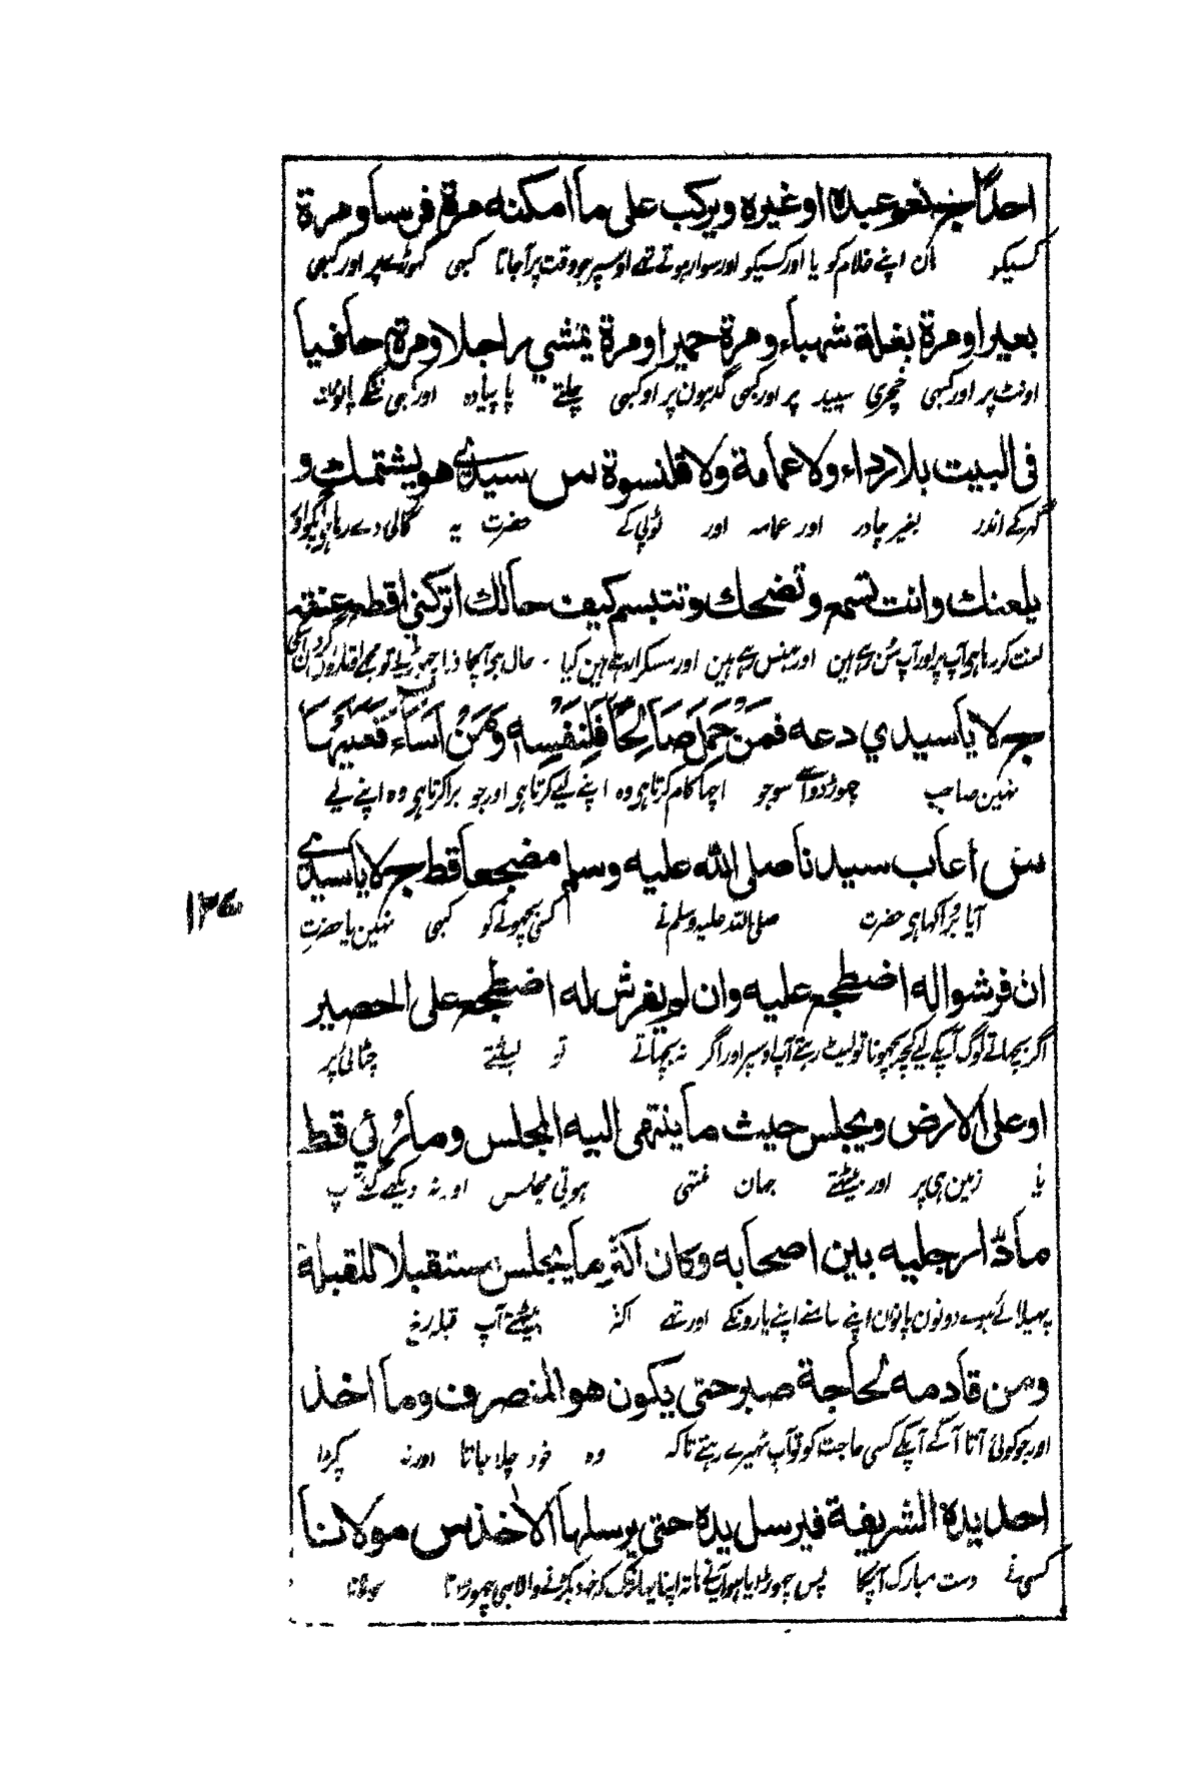 احدا ج نعم عبده او غيره ويركب على ما امكنه مرة فرسا ومرة
کسیکو ہان اپنے غلام کو یا اور کسیکو اور سوار ہوتے تھے اوسپر جو وقت پر آجاتا کبھی گہوڑے پر اور کبھی
بعيرا ومرة بغلة شهباء ومرة حميرا ومرة يمشي راجلا ومرة حافيا
اونٹ پر اور کبھی خچری سپید پر اور کبھی گدہون پر اور کبھی چلتے پا پیادہ اور کبھی ننگے پانوں
فى البيت بلا رداء ولا عمامة ولا قلنسوة س سيدي هو يشتمك و
گہر کے اندر بغیر چادر اور عمامہ اور ٹوپی کے حضرت یہ گالی دے رہا ہی آپکو اور
يلعنك وانت تسمع وتضحك وتتبسم كيف حالك اتركني اقطع عنقه
لعنت کر رہا ہی آپ پر اور آپ سُن رہے ہین اور ہنس رہے ہین اور مسکرا رہے ہین کیا حال ہی آپکا ذرا چھوڑیے تو مجھے
ج لا يا سيدي دعه فمَن عَمِلَ صَالِحًا فَلِنَفْسِهٖ وَمَنْ اَسَاءَ فَعَلَيْهَا
نہین صاحب چھوڑدو اُسے سو جو اچھا کام کرتا ہی وہ اپنے لیے کرتا ہی اور جو برا کرتا ہی وہ اپنے لیے
س اعاب سيدنا صلى الله عليه وسلم مضجعا قط ج لا يا سيدي
آیا بُرا کہا ہی حضرت صلی اللہ علیہ وسلم نے کسی بچھونے کو کبھی نہین یا حضرتِ
١٢٧
ان فرشوا له اضطجع عليه وان لم يفرش له اضطجع على الحصير
اگر بچھاتے لوگ آپکے لیے کچھ بچھونا تو لیٹ رہتے آپ اوسپر اور اگر نہ بچھاتے تو لیٹتے چٹائی پر
او على الارض ويجلس حيث ما ينتهى اليه المجلس وما رُئي قط
یا زمین ہی پر اور بیٹھتے جہان منتہی ہوتی مجلس اور نہ دیکھے گئے آپ
مادّا رجليه بين اصحابه وكان اكثر ما يجلس مستقبلا للقبلة
پھیلائے ہوے دونون پانوں اپنے سامنے اپنے یارونکے اور تھے اکثر بیٹھتے آپ قبلہ رخ
ومن قادمه لحاجة صبر حتى يكون هو المنصرف وما اخذ
اور جو کوئی آتا آگے آپکے کسی حاجت کو تو آپ ٹھیرے رہتے تا کہ وہ خود چلا جاتا اور نہ پکڑا
احد يده الشريفة فيرسل يده حتى يرسلها الآخذ س مولانا
کسی نے دست مبارک آپکا پس چھوڑ دیا ہو آپنے ہاتھ اپنا یہانتک کہ خود پکڑنے والا ہی چھوڑتا مولانا